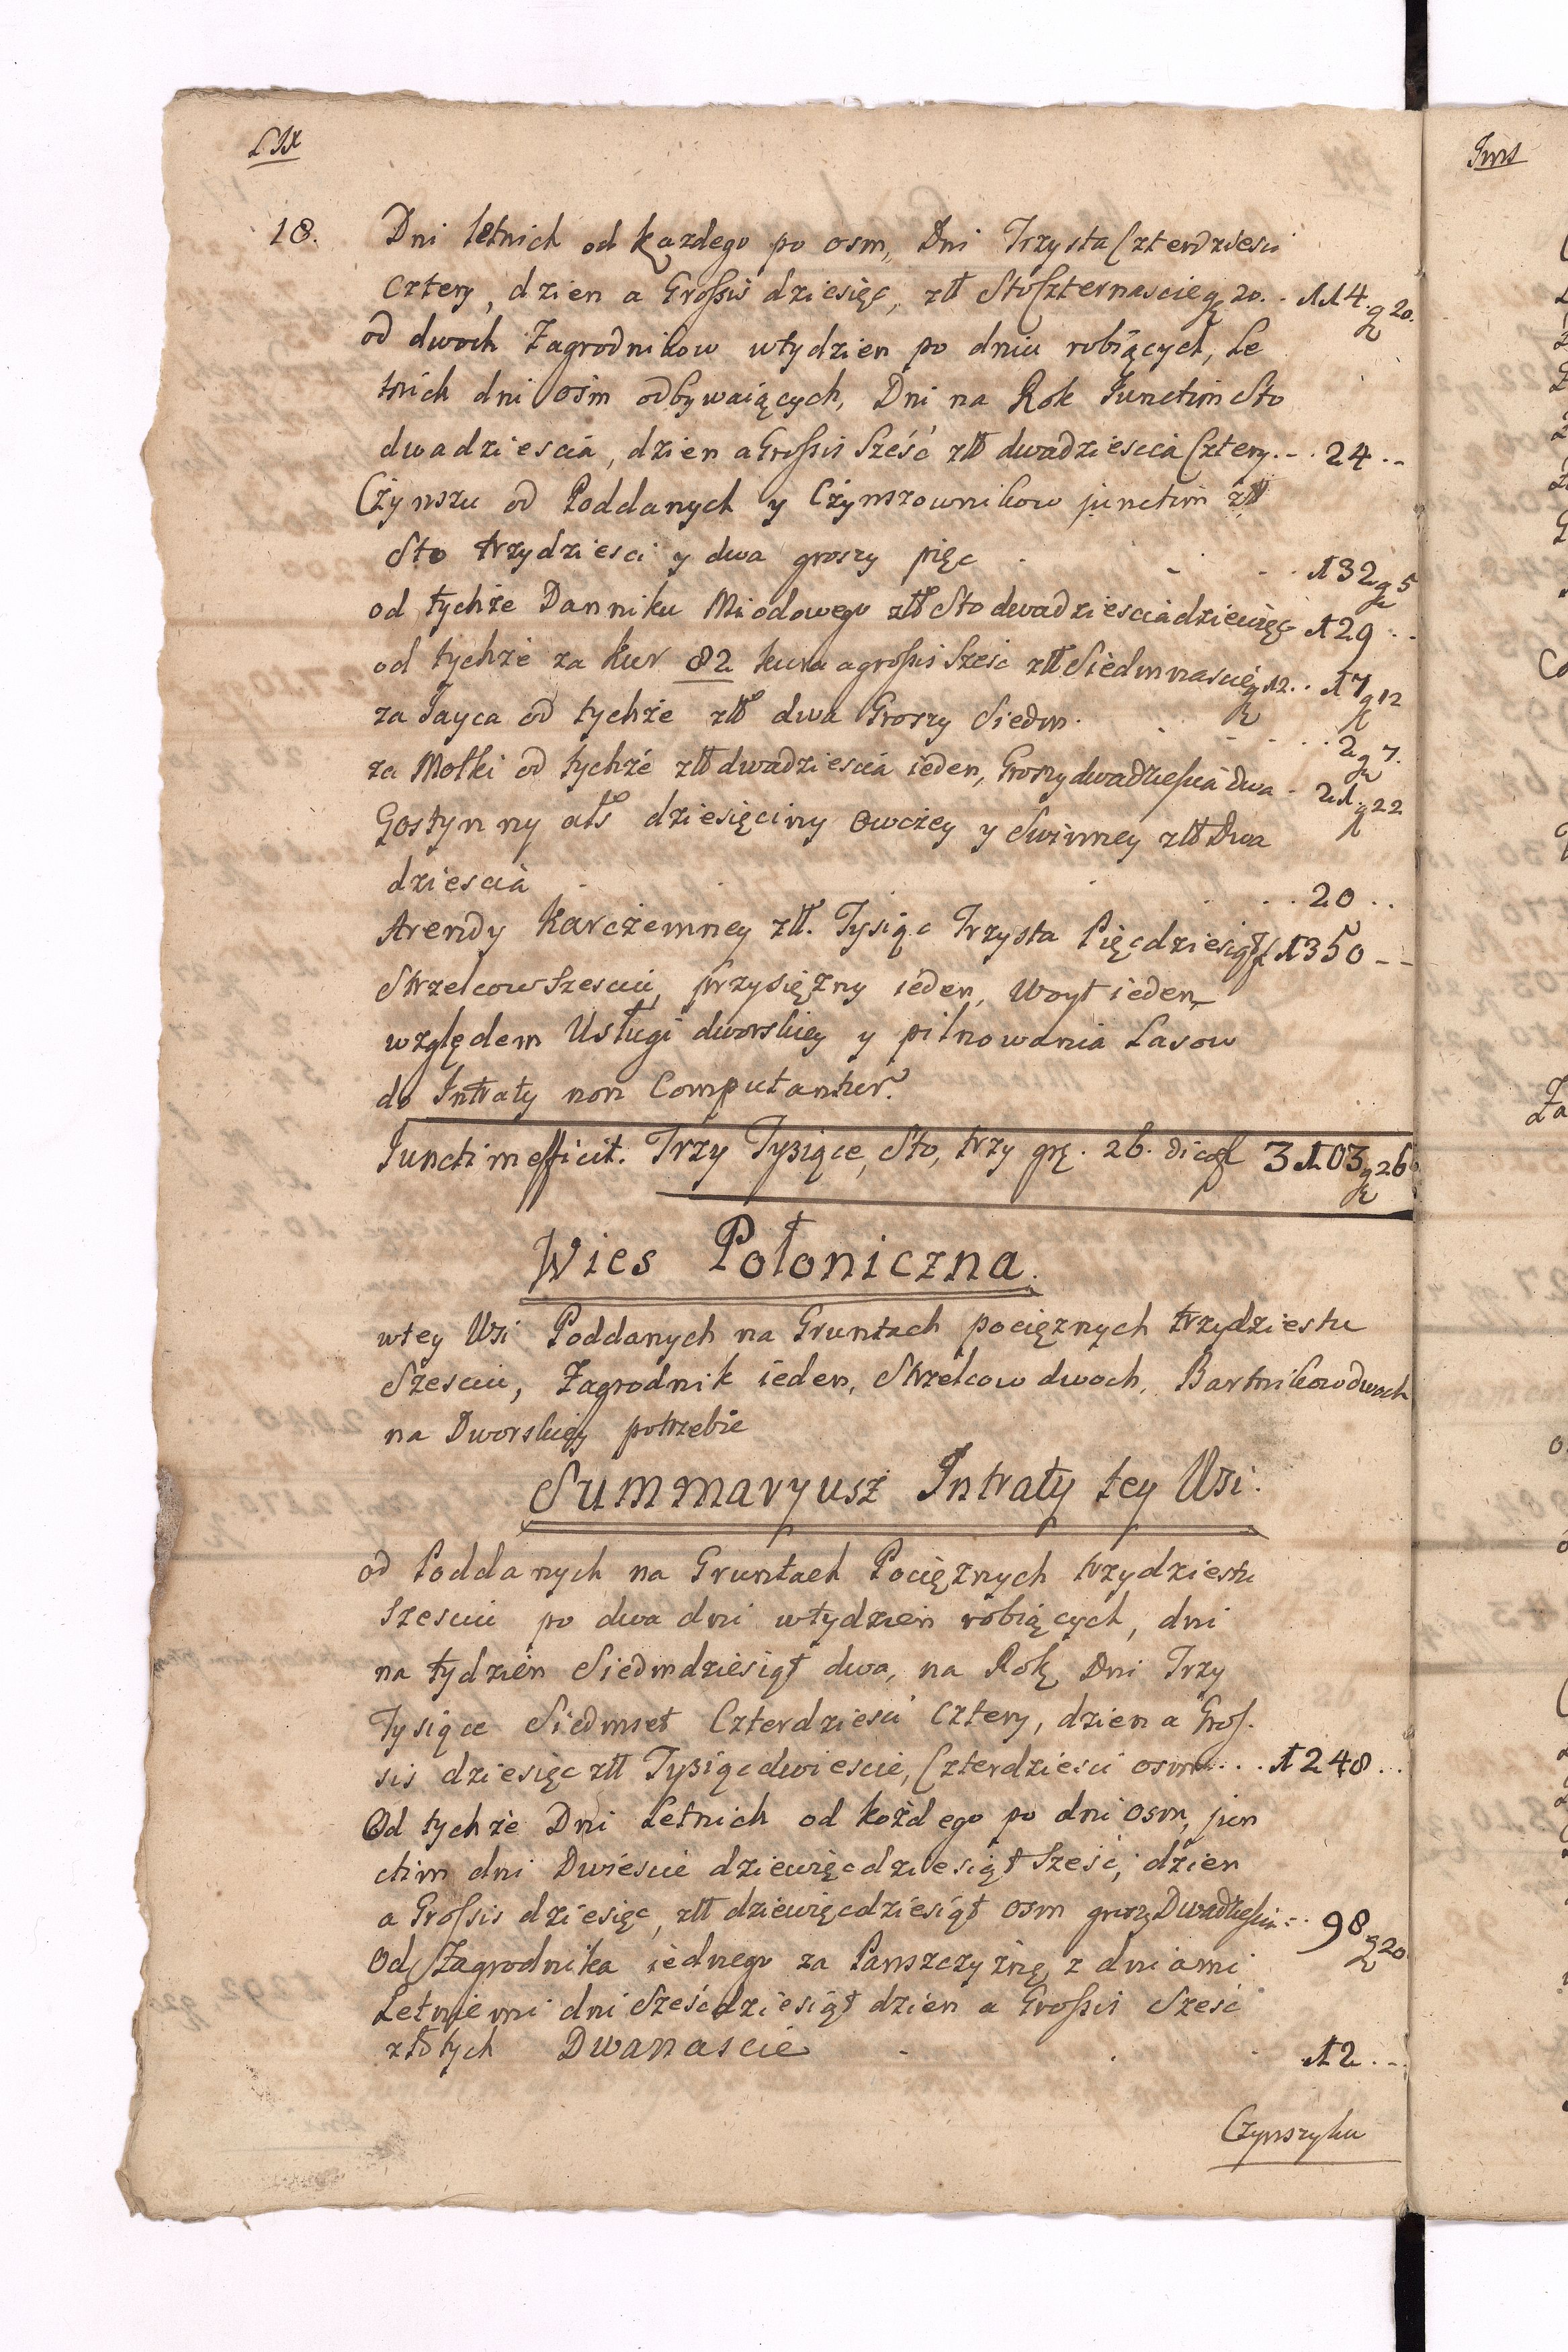 18.
Dni letnich od każdego po osm, Dni Trzysta Czterdziesci
cztery, dzien a Grossis dziesięc, złł Sto Czternascie gr 20. . 114. gr 20.
od dwoch Zagrodnikow wtydzien po dniu robiących, Le
tnich dni osm odbywaiących, Dni na Rok Junctim Sto
dwadziescia, dzien a Grossis Sześć złł dwadziescia Cztery. . 24 ..
Czynszu od Poddanych y Czynszownikow junctim złł
Sto trzydziesci y dwa groszy pięc . - . . 132 gr 5
od tychże Danniku Miodowego złł Sto dwadziescia dziewięc 129 . .
od tychże za kur 82 kura a grossis sześc złł Siedmnascie gr 12. . 17 gr 12
za Jayca od tychże złł dwa Groszy Siedm. . . 2 gr 7.
za Motki od tychże złł dwadziescia ieden, Groszy dwadziescia dwa - 21 gr 22
Gostynny als dziesięciny Owczey y Swinney złł Dwa
dziescia . . . 20 ..
Arendy Karczemney złł. Tysiąc Trzysta Pięcdziesiąt 1350 - -
Strzelcow szesciu, przysiężny ieden, Woyt ieden,
względem Usługi dworskiey y pilnowania Lasow
do Intraty non Computantur.
Junctim efficit. Trzy Tysiące, Sto, trzy gr. 26. dico 3103 gr 26
Wies Połoniczna.
wtey Wsi Poddanych na Gruntach pociężnych trzydziestu
Szesciu, Zagrodnik ieden, Strzelcow dwoch, Bartnikow dwoch
na Dworskiey potrzebie
Summaryusz Intraty tey Wsi.
od Poddanych na Gruntach Pociężnych trzydziestu
Szesciu po dwa dni wtydzień robiących, dni
na tydzień Siedmdziesiąt dwa, na Rok Dni Trzy
Tysiące Siedmset Czterdziesci cztery, dzien a Gros.
sis dziesięc złł Tysiąc dwiescie, Czterdziesci osm ... 1248 ...
Od tychże Dni Letnich od kożdego po dni osm, jun
ctim dni Dwiescie dziewięcdziesiąt Sześć, dzien
a Grossis dziesięc, złł dziewięcdziesiąt osm groszy Dwadziescia . 98 gr 20
Od Zagrodnika iednego za Panszczyznę z dniami
Letniemi dni Sześcdziesiąt dzien a Grossis Sześc
złotych Dwanascie . . . 12 ..
Czynszyku